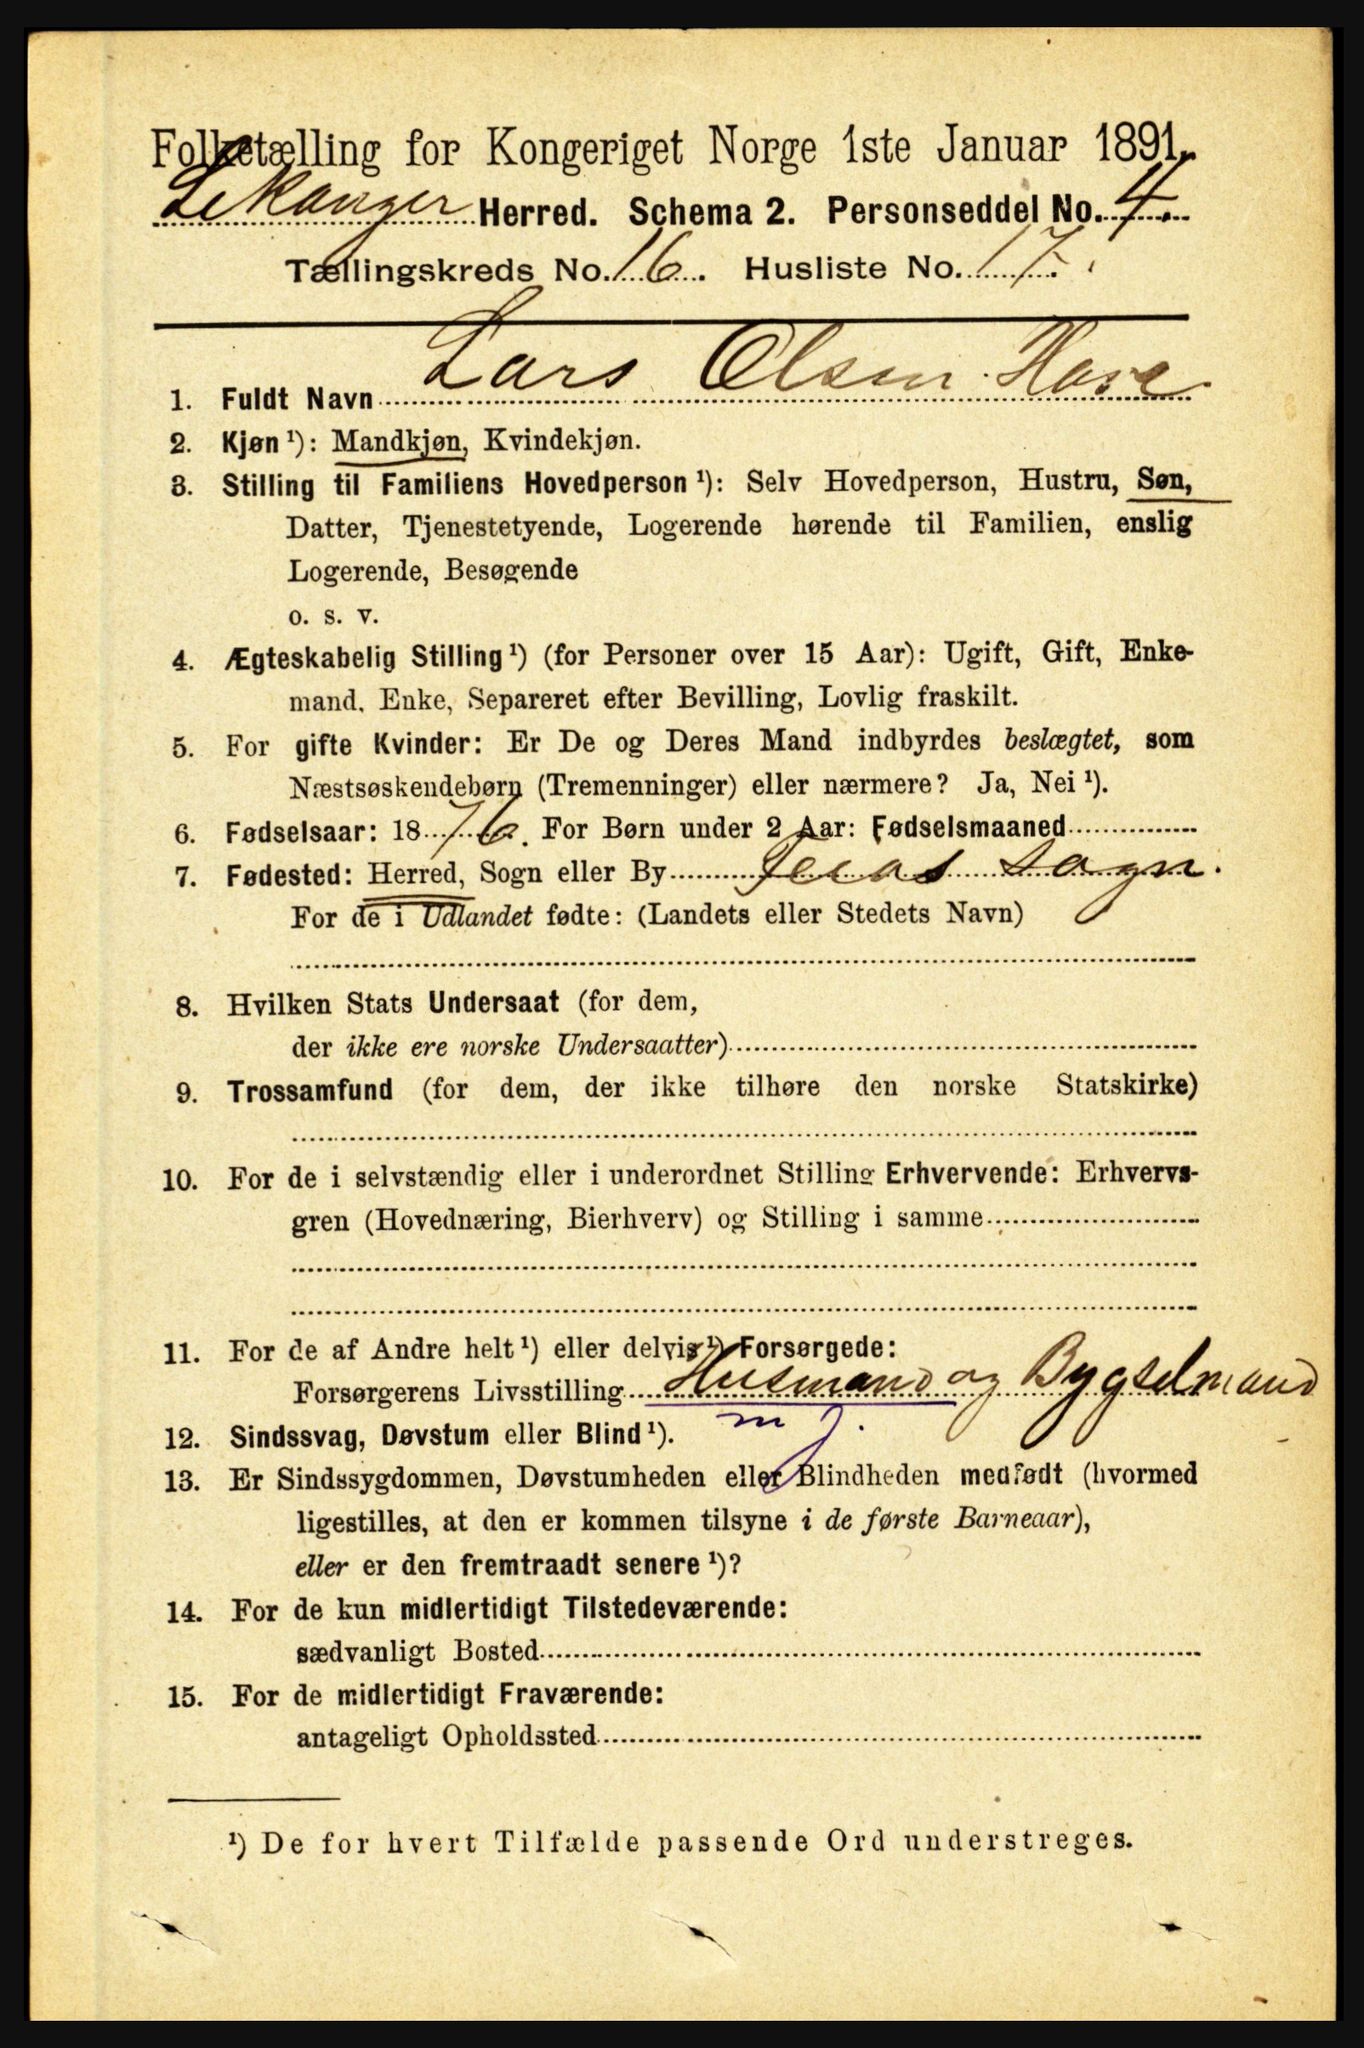 Folketælling for Kongeriget Norge 1ste Januar 1891.
Lekanger Herred. Schema 2. Personseddel No. 4.
Tællingskreds No. 16. Husliste No. 17.
Lars Olsen
1. Fuldt Navn
2. Kjøn ¹): Mandkjøn, Kvindekjøn.
3. Stilling til Familiens Hovedperson ¹): Selv Hovedperson, Hustru, Søn,
Datter, Tjenestetyende, Logerende hørende til Familien, enslig
Logerende, Besøgende
o. s. v.
4. Ægteskabelig Stilling ¹) (for Personer over 15 Aar): Ugift, Gift, Enke-
mand, Enke, Separeret efter Bevilling, Lovlig fraskilt.
5. For gifte Kvinder: Er De og Deres Mand indbyrdes beslægtet, som
Næstsøskendebørn (Tremenninger) eller nærmere? Ja, Nei ¹).
6. Fødselsaar: 1876. For Børn under 2 Aar: Fødselsmaaned
7. Fødested: Herred, Sogn eller By Feios Sogn.
For de i Udlandet fødte: (Landets eller Stedets Navn)
8. Hvilken Stats Undersaat (for dem,
der ikke ere norske Undersaatter)
9. Trossamfund (for dem, der ikke tilhøre den norske Statskirke)
10. For de i selvstændig eller i underordnet Stilling Erhvervende: Erhvervs-
gren (Hovednæring, Bierhverv) og Stilling i samme
11. For de af Andre helt ¹) eller delvis ¹) Forsørgede:
Forsørgerens Livsstilling Husmand og Bygselmand
m j.
12. Sindssvag, Døvstum eller Blind ¹).
13. Er Sindssygdommen, Døvstumheden eller Blindheden medfødt (hvormed
ligestilles, at den er kommen tilsyne i de første Barneaar),
eller er den fremtraadt senere ¹)?
14. For de kun midlertidigt Tilstedeværende:
sædvanligt Bosted
15. For de midlertidigt Fraværende:
antageligt Opholdssted
¹) De for hvert Tilfælde passende Ord understreges.